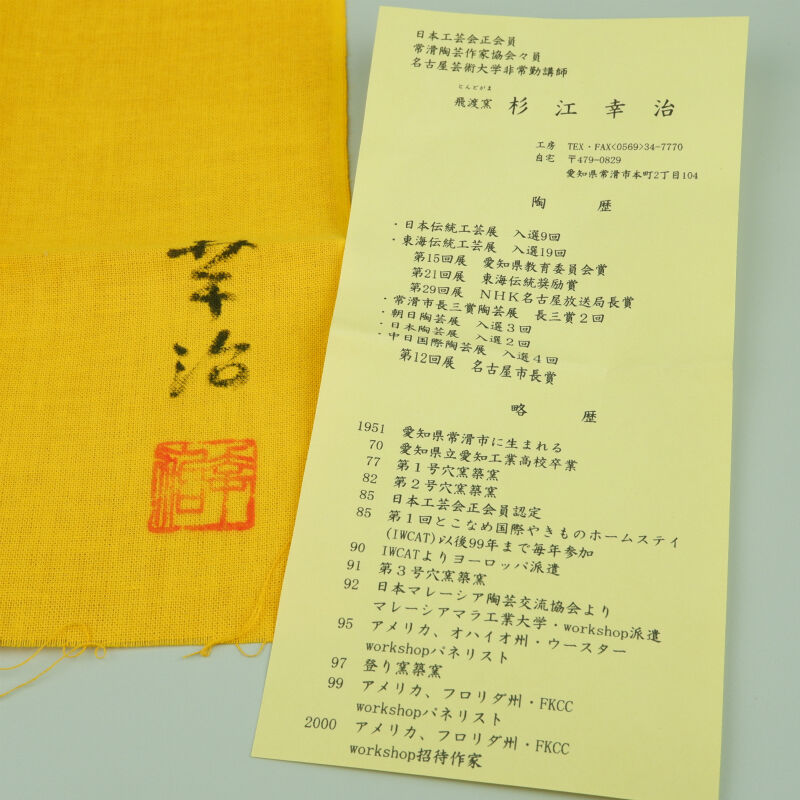 幸治
幸治
日本工芸会正会員
常滑陶芸作家協会々員
名古屋芸術大学非常勤講師
とんどがま
飛渡窯 杉江幸治
工房 TEX・FAX<0569>34-7770
自宅 〒479-0829
愛知県常滑市本町2丁目104
陶 歴
・日本伝統工芸展 入選9回
・東海伝統工芸展 入選19回
第15回展 愛知県教育委員会賞
第21回展 東海伝統奨励賞
第29回展 NHK名古屋放送局長賞
・常滑市長三賞陶芸展 長三賞2回
・朝日陶芸展 入選3回
・日本陶芸展 入選2回
・中日国際陶芸展 入選4回
第12回展 名古屋市長賞
略 歴
1951 愛知県常滑市に生まれる
70 愛知県立愛知工業高校卒業
77 第1号穴窯築窯
82 第2号穴窯築窯
85 日本工芸会正会員認定
85 第1回とこなめ国際やきものホームステイ
(IWCAT)以後99年まで毎年参加
90 IWCATよりヨーロッパ派遣
91 第3号穴窯築窯
92 日本マレーシア陶芸交流協会より
マレーシアマラ工業大学・workshop派遣
95 アメリカ、オハイオ州・ウースター
workshopパネリスト
97 登り窯築窯
99 アメリカ、フロリダ州・FKCC
workshopパネリスト
2000 アメリカ、フロリダ州・FKCC
workshop招待作家